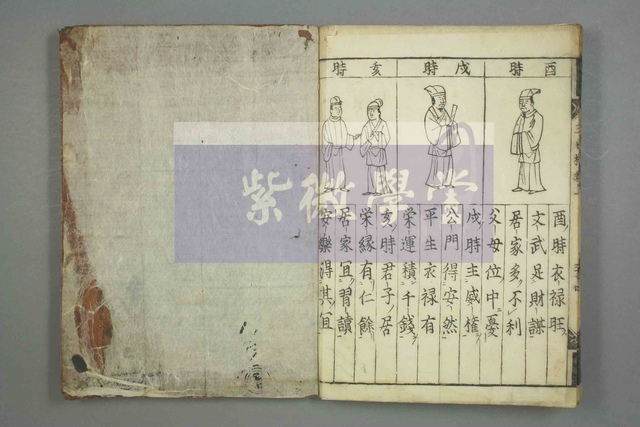 酉時
戌時
亥時
酉時衣禄旺
文武足財謀
居家多不利
父母位中憂
戌時主威權
公門得安然
平生衣禄有
栄運積千錢
亥時君子居
栄縁有仁餘
居家宜習讀
安樂得其宜
紫微學堂